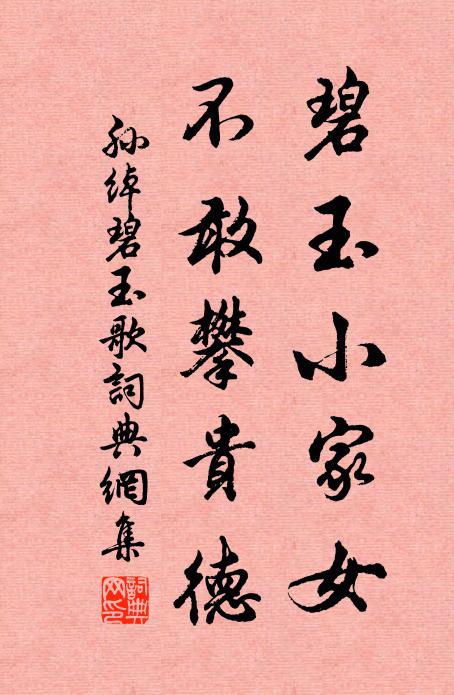 碧玉小家女
不敢攀貴德
孫綽碧玉歌詞典網集
詞典網印